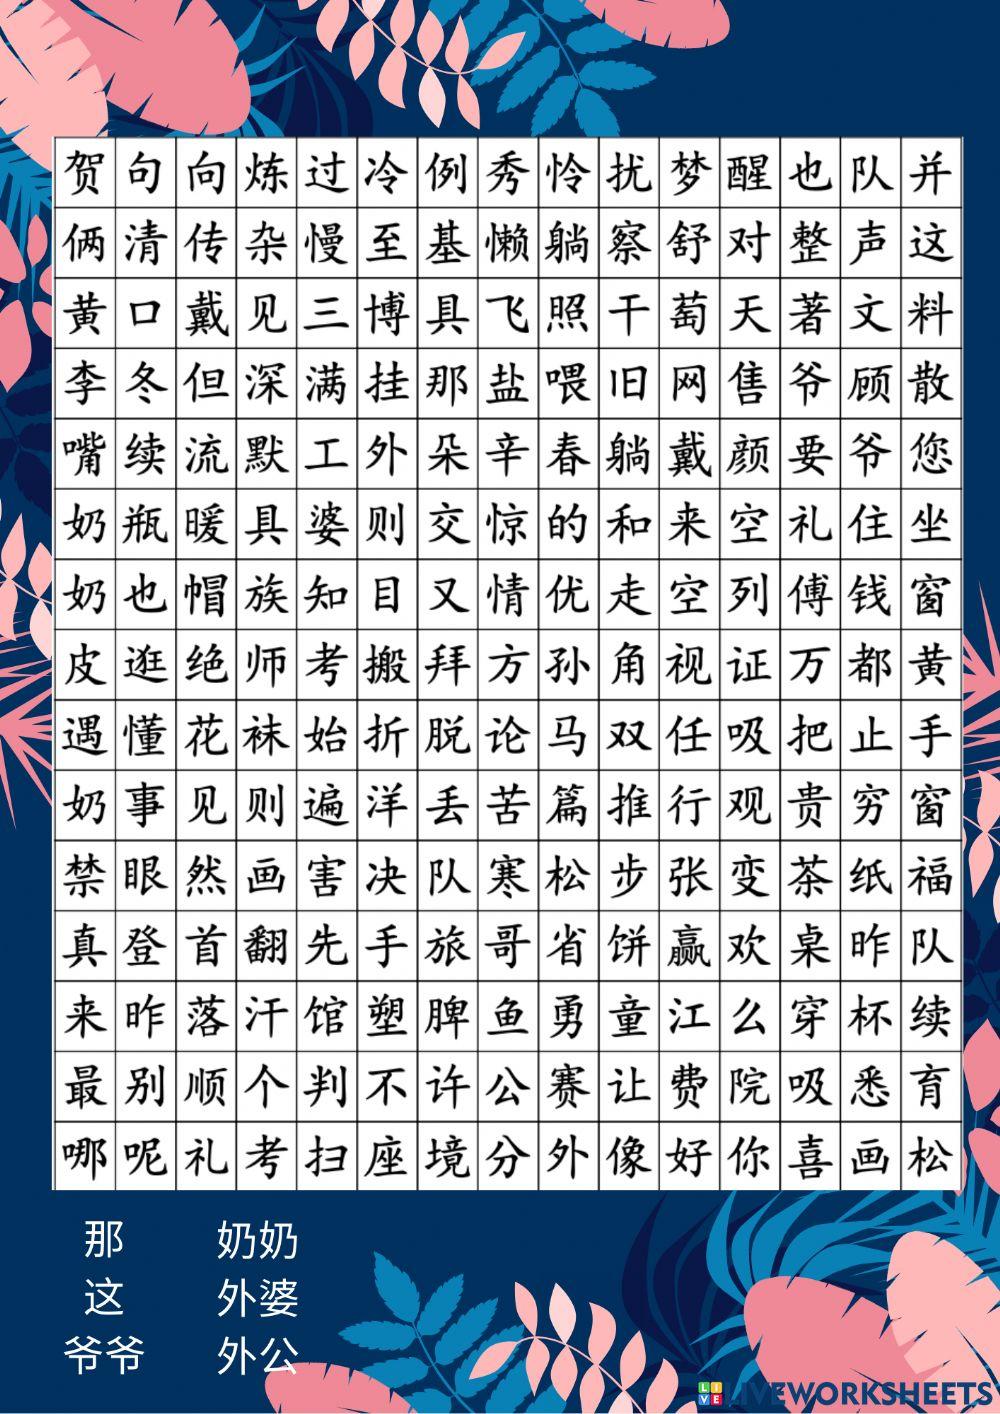 贺句向炼过冷例秀怜扰梦醒也队并
俩清传杂慢至基懒躺察舒对整声这
黄口戴见三博具飞照干萄天著文料
李冬但深满挂那盐喂旧网售爷顾散
嘴续流默工外朵辛春躺戴颜要爷您
奶瓶暖具婆则交惊的和来空礼住坐
奶也帽族知目又情优走空列傅钱窗
皮逛绝师考搬拜方孙角视证万都黄
遇懂花袜始折脱论马双任吸把止手
奶事见则遍洋丢苦篇推行观贵穷窗
禁眼然画害决队寒松步张变茶纸福
真登首翻先手旅哥省饼赢欢桌昨队
来昨落汗馆塑脾鱼勇童江么穿杯续
最别顺个判不许公赛让费院吸悉育
哪呢礼考扫座境分外像好你喜画松
那 奶奶
这 外婆
爷爷 外公
LIVEWORKSHEETS